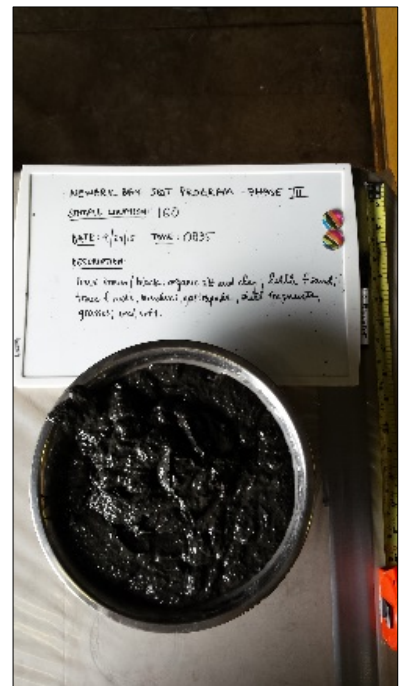 NEWARK BAY SQT PROGRAM - PHASE III
SAMPLE LOCATION: 160
DATE: TIME: 0835
DESCRIPTION:
brown/black, organic silt and clay, little f sand,
trace f shells, gastropods, shell fragments,
grasses, wet, soft.